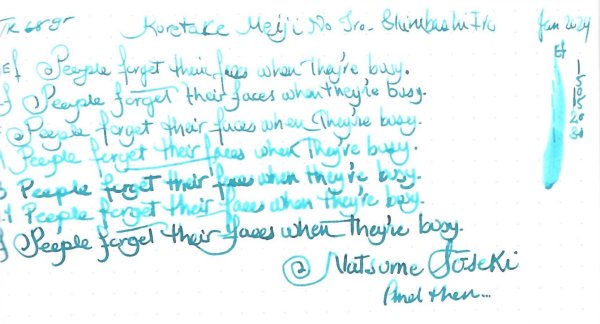 TR 68gr Kuretake Meiji No Iro - Shinbashi Iro Jan 2024
Ef People forget their faces when They're busy.
f People forget their faces when they're busy.
People forget their faces when They're busy.
People forget their faces when They're busy.
B People forget their faces when they're busy.
People forget their faces when they're busy.
f People forget their faces when They're busy.
Natsume Sōseki
And then...
Ef
1
5
10
15
20
30